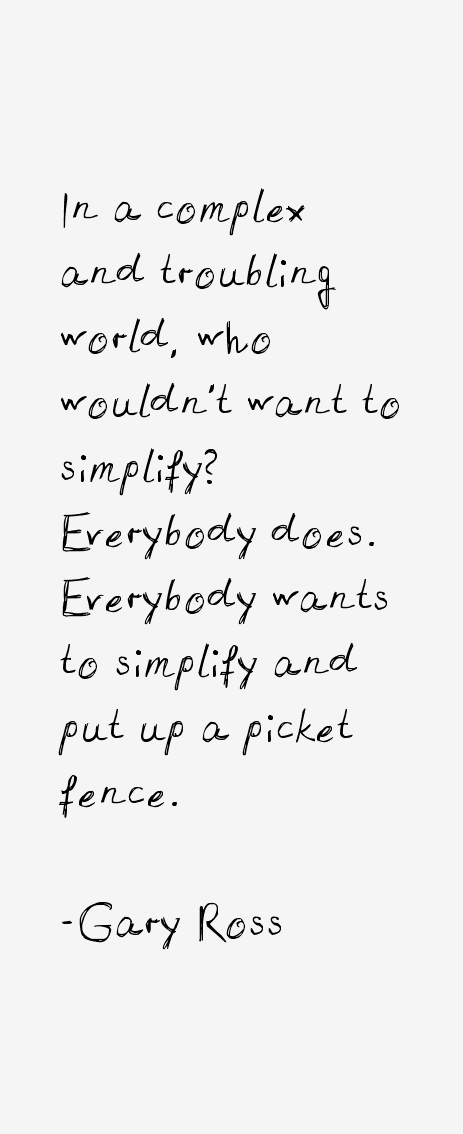 In a complex
and troubling
world, who
wouldn't want to
simplify?
Everybody does.
Everybody wants
to simplify and
put up a picket
fence.
-Gary Ross